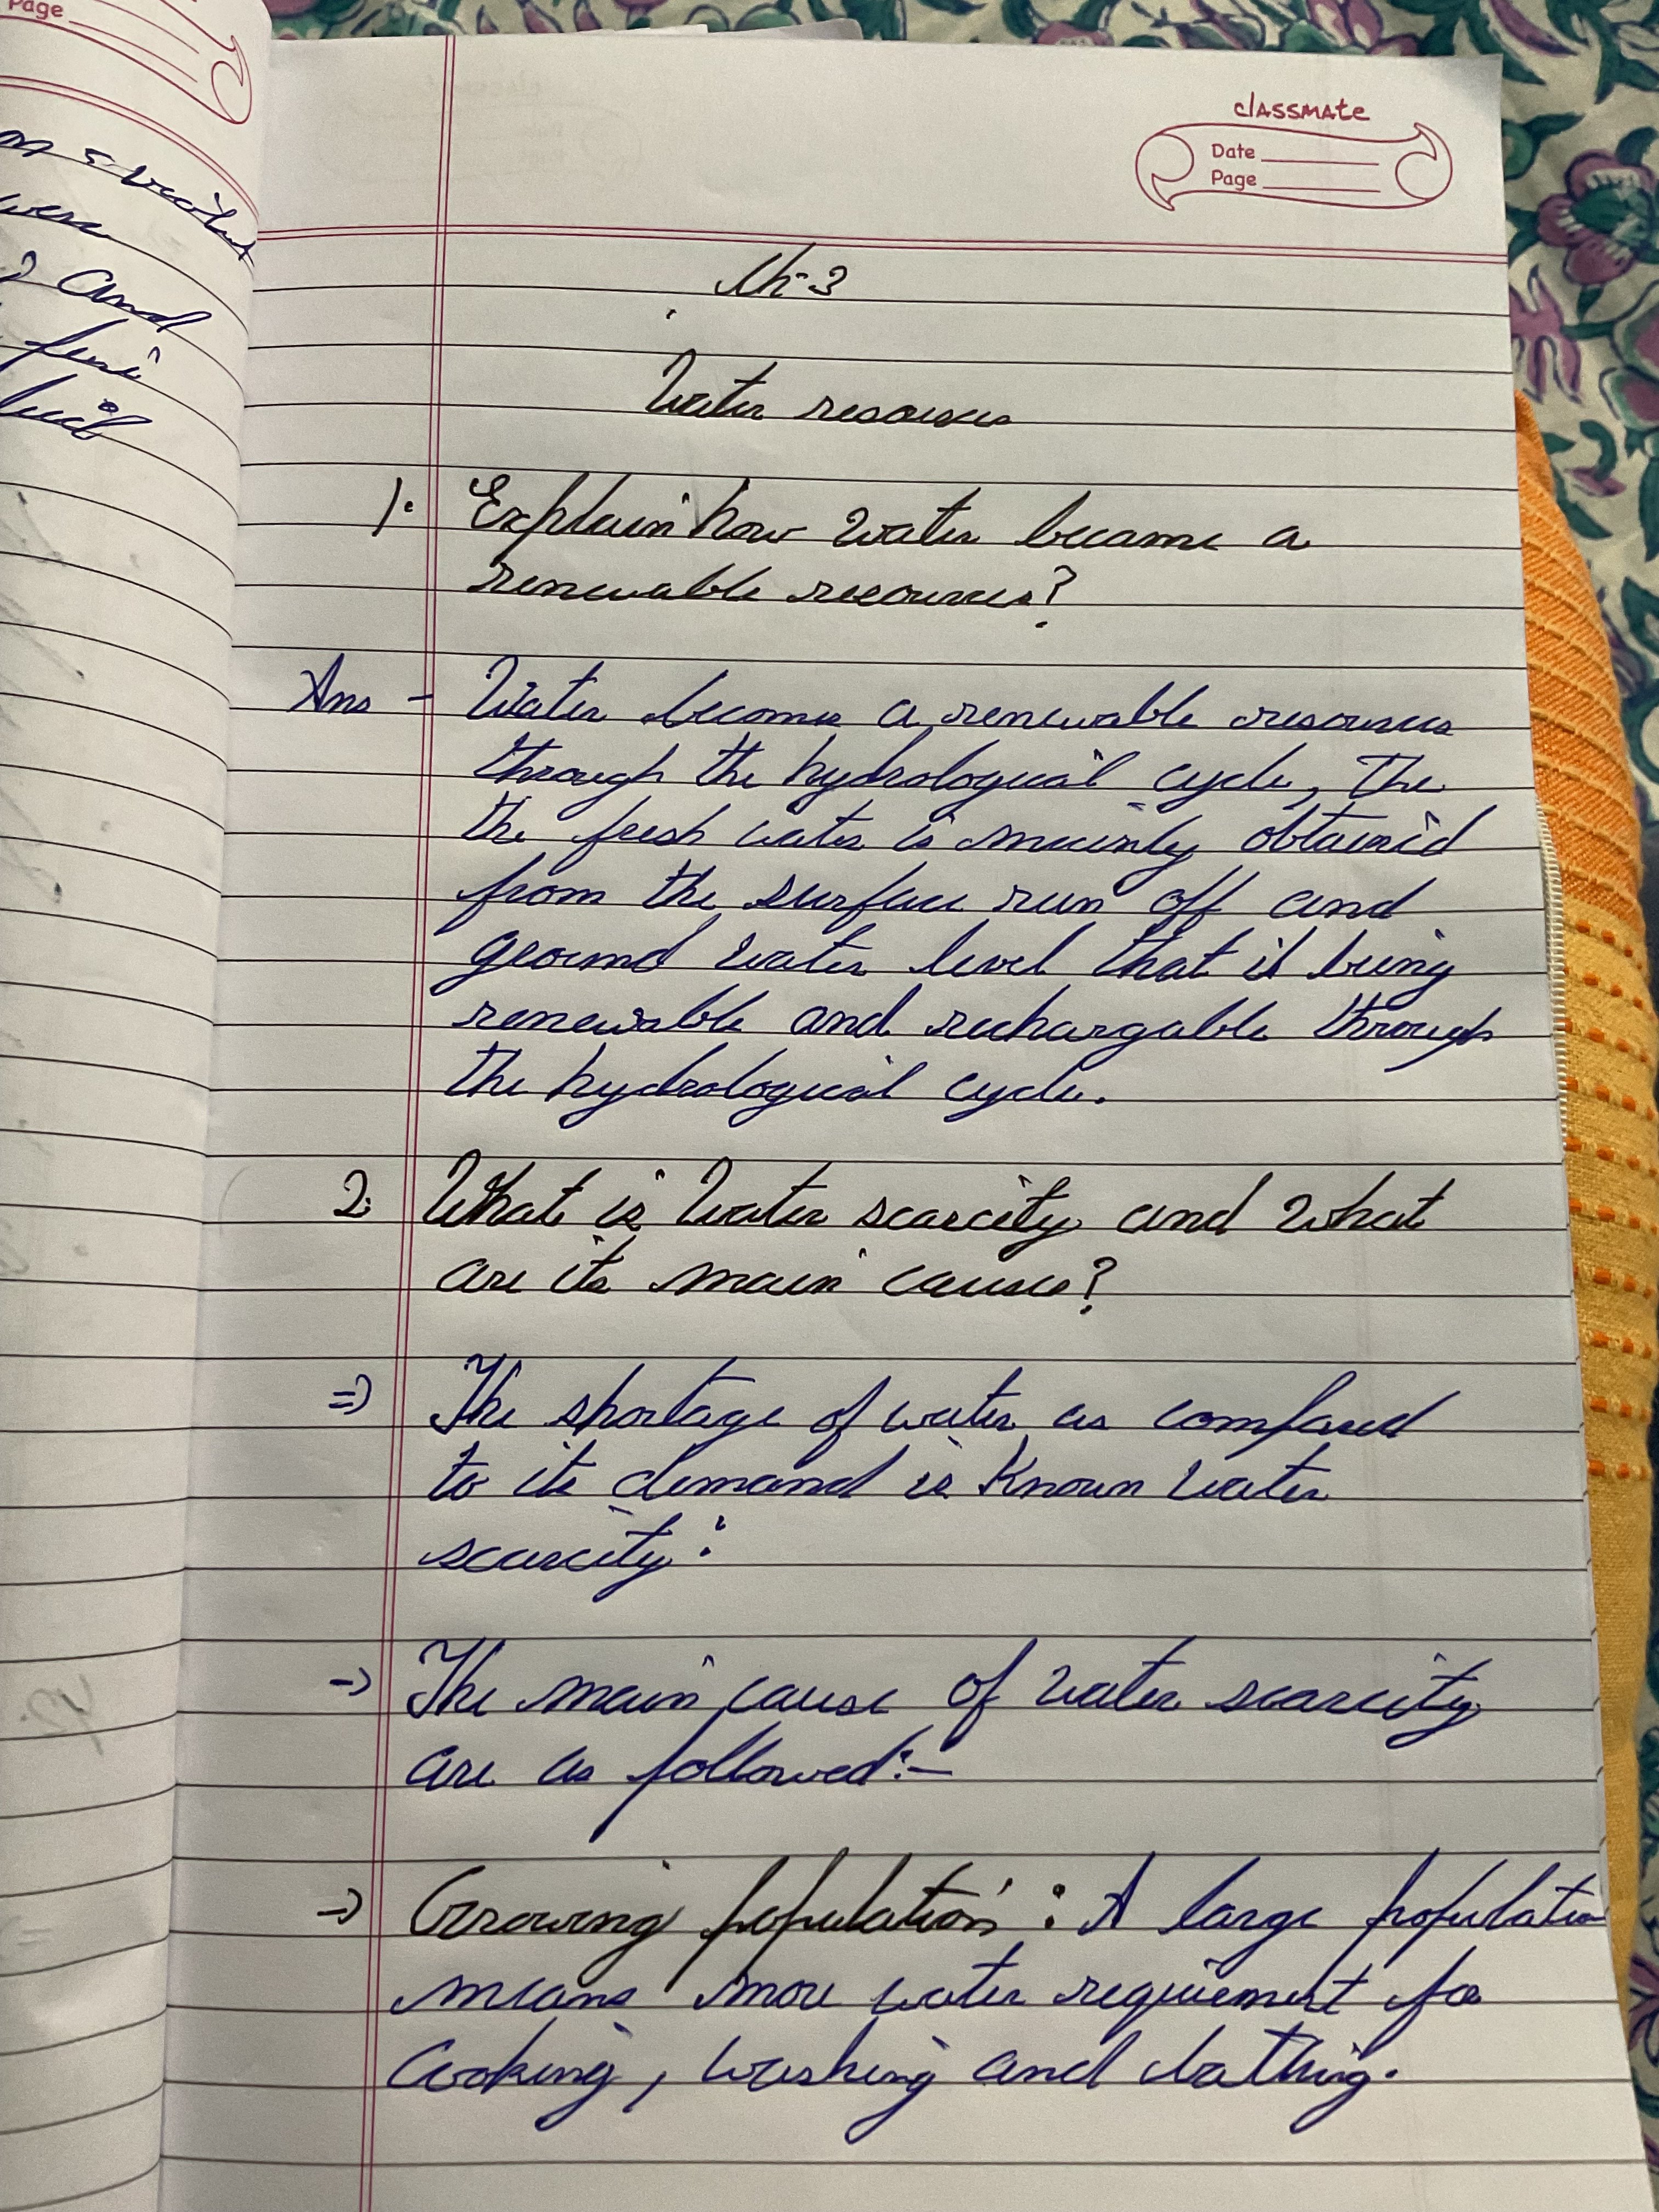 Page
and
classmate
Date
Page
Ch-3
Water resources
1. Explain how water became a
renewable resources?
Ans - Water becomes a renewable resources
through the hydrological cycle, The
the fresh water is mainly obtained
from the surface run off and
ground water level that is being
renewable and rechargable through
the hydrological cycle.
2. What is water scarcity and what
are its main causes?
=> The shortage of water as compared
to its demand is known water
scarcity:
-> The main cause of water scarcity
are as followed:-
-> Growing population: A large population
means more water requirement for
cooking, washing and bathing.